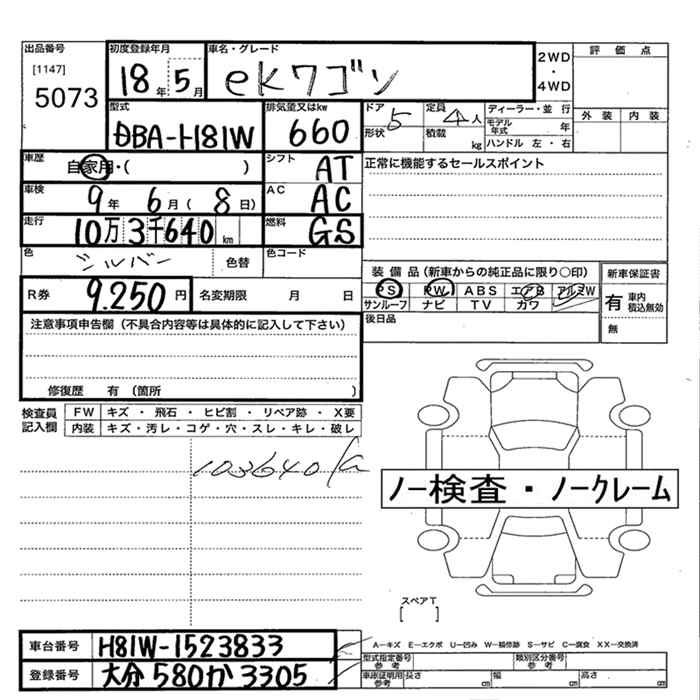 出品番号 初度登録年月 車名・グレード 評価点
[1147] 5073 18年 5月 ekワゴン 2WD・4WD
外装 内装
型式 排気量又はkw ドア 定員 ディーラー・並行
DBA-H81W 660 5 4人 モデル年式 年
形状 積載 kg ハンドル 左・右
車歴 シフト 正常に機能するセールスポイント
自家用・( ) AT
車検 AC
9年 6月(8日) AC
走行 燃料
10万3千640km GS
色 シルバー 色替 色コード
装備品(新車からの純正品に限り○印) 新車保証書
R券 9.250円 名変期限 月 日
PS PW ABS エアB アルミW 有 車内積込無効
サンルーフ ナビ TV カワ 無
注意事項申告欄(不具合内容等は具体的に記入して下さい) 後日品
修復歴 有 (箇所 )
検査員記入欄 FW キズ・飛石・ヒビ割・リペア跡・X要
内装 キズ・汚レ・コゲ・穴・スレ・キレ・破レ
103640
ノー検査・ノークレーム
スペアT
[ ]
車台番号 H81W-1523833 A−キズ E−エクボ U−凹み W−補修跡 S−サビ C−腐食 XX−交換済
型式指定番号 参考 類別区分番号 参考
登録番号 大分580か3305 車庫証明用 参考 長さ cm 幅 cm 高さ cm